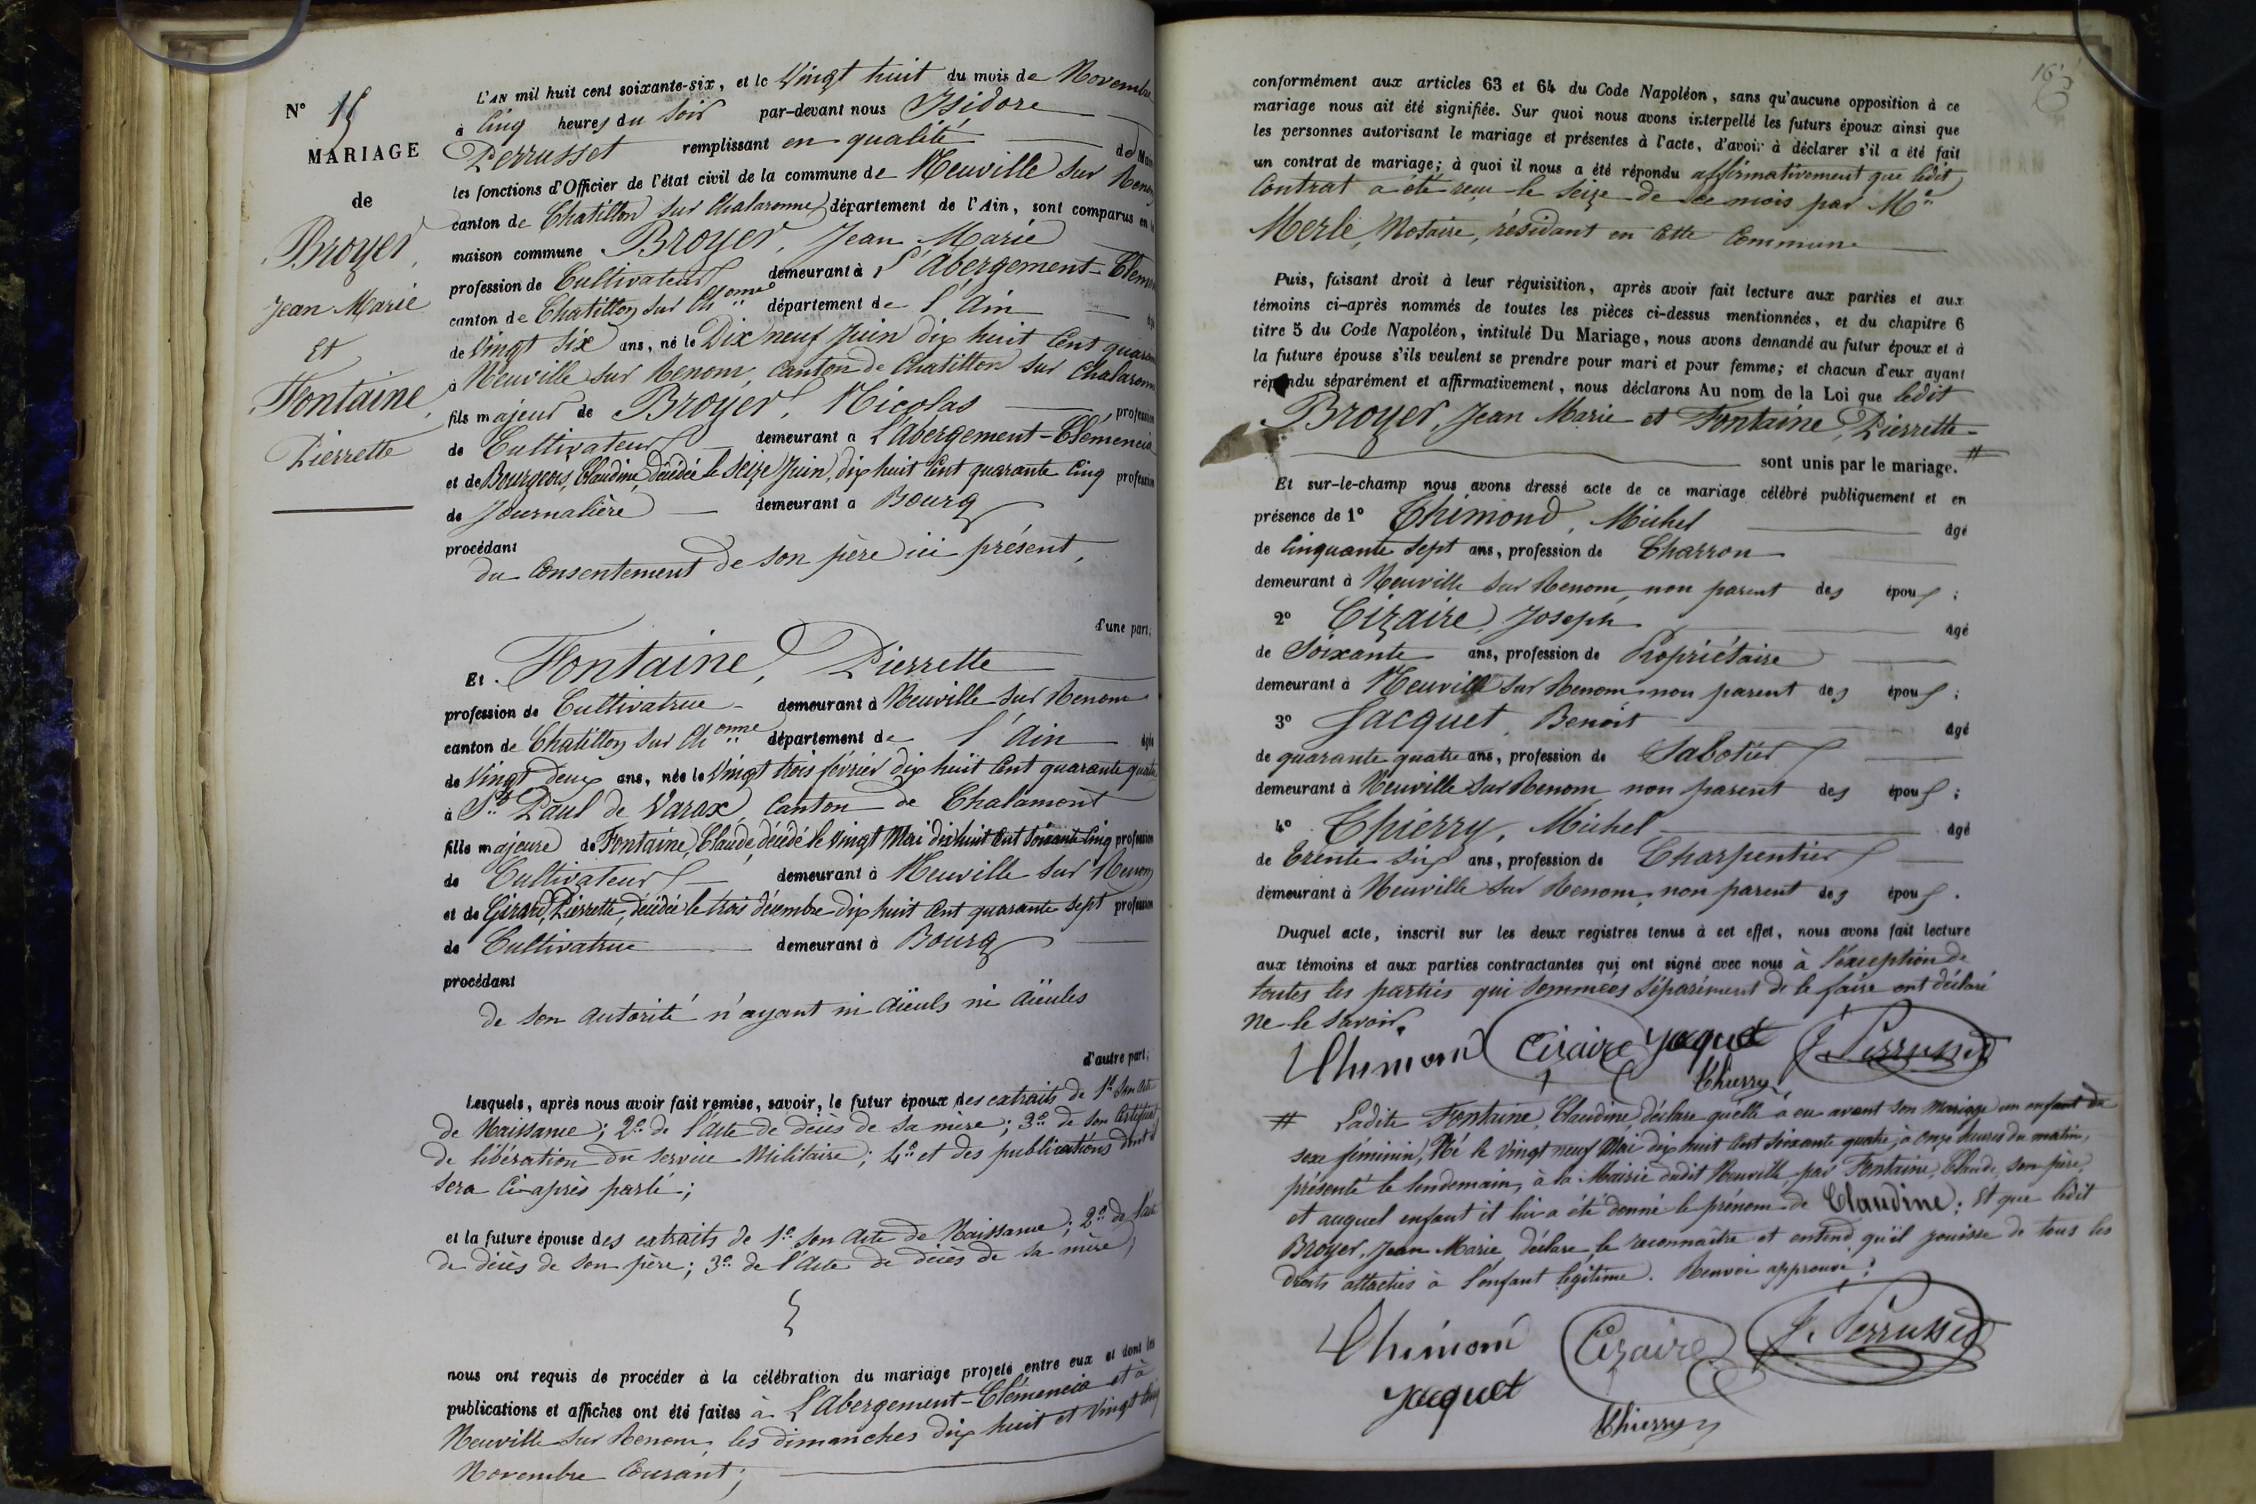 N° 15
MARIAGE
de
Broyer,
Jean Marie
Et
Fontaine,
Pierrette
L'AN mil huit cent soixante-six, et le Vingt huit du mois de Novembre
à Cinq heures du Soir par-devant nous Isidore
Perrusset remplissant en qualité de Maire
les fonctions d'Officier de l'état civil de la commune de Neuville sur Renom
canton de Chatillon sur Chalaronne, département de l'Ain, sont comparus en la
maison commune Broyer, Jean Marie
profession de Cultivateur demeurant à l'Abergement-Clémencia
canton de Chatillon sur Ch.onne département de l'Ain
de Vingt six ans, né le Dix neuf Juin dix huit Cent quarante
à Neuville sur Renom, canton de Chatillon sur Chalaronne
fils majeur de Broyer, Nicolas profession
de Cultivateur demeurant à L'Abergement-Clémencia
et de Bourgeois, Claudine, décédée le Seize Juin, dix huit Cent quarante Cinq profession
de Journalière demeurant à Bourg
procédant
du Consentement de son père ici présent,
d'une part;
Et Fontaine, Pierrette
profession de Cultivatrice demeurant à Neuville sur Renom
canton de Chatillon sur Ch.onne département de l'Ain âgée
de Vingt deux ans, née le Vingt trois février dix huit Cent quarante quatre
à St Paul de Varax, Canton de Chalamont
fille majeure de Fontaine, Claude, décédé le vingt Mai dix huit Cent Soixante Cinq profession
de Cultivateur demeurant à Neuville sur Renom
et de Girard, Pierrette, décédée le trois décembre dix huit Cent quarante sept profession
de Cultivatrice demeurant à Bourg
procédant
de son autorité n'ayant ni aïeuls ni aïeules
d'autre part;
Lesquels, après nous avoir fait remise, savoir, le futur époux des extraits de 1° Son acte
de Naissance; 2° de l'acte de décès de sa mère; 3° de son Certificat
de libération du service Militaire; 4° et des publications dont il
sera Ci-après parlé;
et la future épouse des extraits de 1° son acte de Naissance; 2° de l'acte
de décès de son père; 3° de l'Acte de décès de sa mère;
nous ont requis de procéder à la célébration du mariage projeté entre eux et dont les
publications et affiches ont été faites à L'Abergement-Clémencia et à
Neuville sur Renom, les dimanches dix huit et Vingt Cinq
Novembre Courant;
conformément aux articles 63 et 64 du Code Napoléon, sans qu'aucune opposition à ce
mariage nous ait été signifiée. Sur quoi nous avons interpellé les futurs époux ainsi que
les personnes autorisant le mariage et présentes à l'acte, d'avoir à déclarer s'il a été fait
un contrat de mariage; à quoi il nous a été répondu affirmativement que ledit
Contrat a été reçu le Seize de ce mois par Me
Merle, Notaire, résidant en Cette Commune
Puis, faisant droit à leur réquisition, après avoir fait lecture aux parties et aux
témoins ci-après nommés de toutes les pièces ci-dessus mentionnées, et du chapitre 6
titre 5 du Code Napoléon, intitulé Du Mariage, nous avons demandé au futur époux et à
la future épouse s'ils veulent se prendre pour mari et pour femme; et chacun d'eux ayant
répondu séparément et affirmativement, nous déclarons Au nom de la Loi que ledit
Broyer, Jean Marie et Fontaine, Pierrette
sont unis par le mariage. #
Et sur-le-champ nous avons dressé acte de ce mariage célébré publiquement et en
présence de 1° Thimond, Michel âgé
de Cinquante sept ans, profession de Charron
demeurant à Neuville sur Renom, non parent des époux;
2° Cizaire, Joseph âgé
de Soixante ans, profession de Propriétaire
demeurant à Neuville sur Renom non parent des époux;
3° Jacquet, Benoit âgé
de quarante quatre ans, profession de Sabotier
demeurant à Neuville sur Renom non parent des époux;
4° Thierry, Michel âgé
de trente six ans, profession de Charpentier
demeurant à Neuville sur Renom, non parent des époux.
Duquel acte, inscrit sur les deux registres tenus à cet effet, nous avons fait lecture
aux témoins et aux parties contractantes qui ont signé avec nous à l'exception de
toutes les parties qui sommées séparément de le faire ont déclaré
ne le savoir.
Thimond Cizaire Jaquet J. Perrusset
Thierry
# Ladite Fontaine, Claudine, déclare qu'elle a eu avant son mariage un enfant du
sexe féminin, Né le vingt neuf Mai dix huit Cent soixante quatre, à onze heures du matin,
présenté le lendemain, à la Mairie dudit Neuville, par Fontaine, Claude, son père,
et auquel enfant il lui a été donné le prénom de Claudine; Et que ledit
Broyer, Jean Marie, déclare le reconnaître et entend qu'il jouisse de tous les
droits attachés à l'enfant légitime. Renvoi approuvé:
Thimond Cizaire J. Perrusset
Jaquet
Thierry